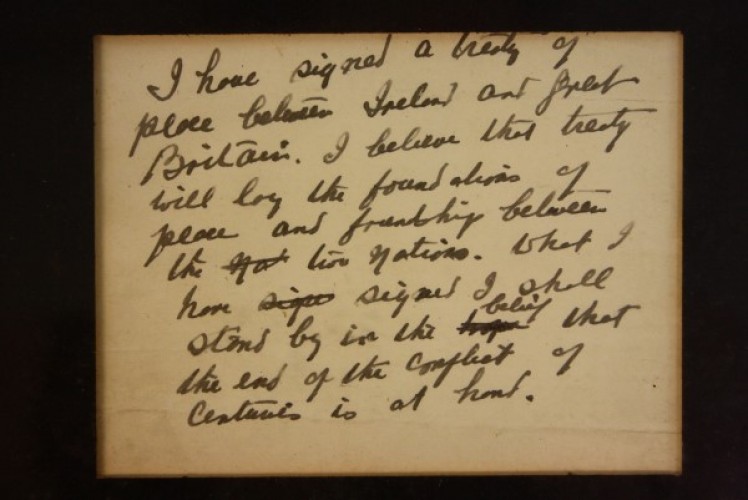 I have signed a treaty of
peace between Ireland and Great
Britain. I believe that treaty
will lay the foundations of
peace and friendship between
the Nat two Nations. What I
have signe signed I shall
belief
stand by in the hope that
the end of the conflict of
centuries is at hand.